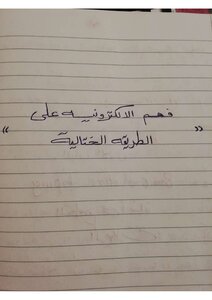 فهم الالكترونيه على
" الطريقه الختالية "